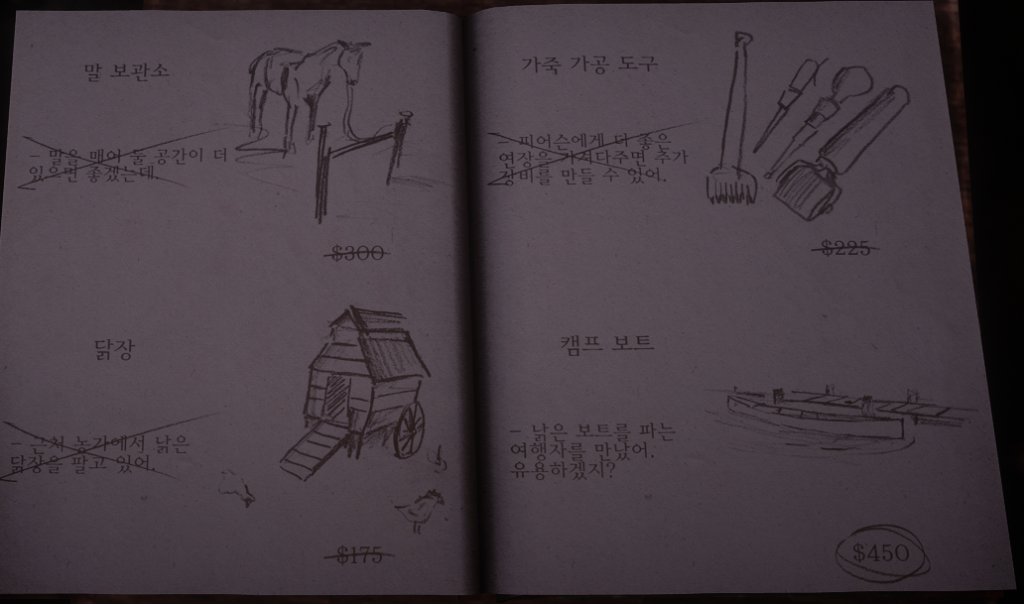 말 보관소
- 말을 매어 둘 공간이 더
있으면 좋겠는데.
$300
닭장
- 근처 농가에서 낡은
닭장을 팔고 있어.
$175
가죽 가공 도구
- 피어슨에게 더 좋은
연장을 가져다주면 추가
장비를 만들 수 있어.
$225
캠프 보트
- 낡은 보트를 파는
여행자를 만났어.
유용하겠지?
$450